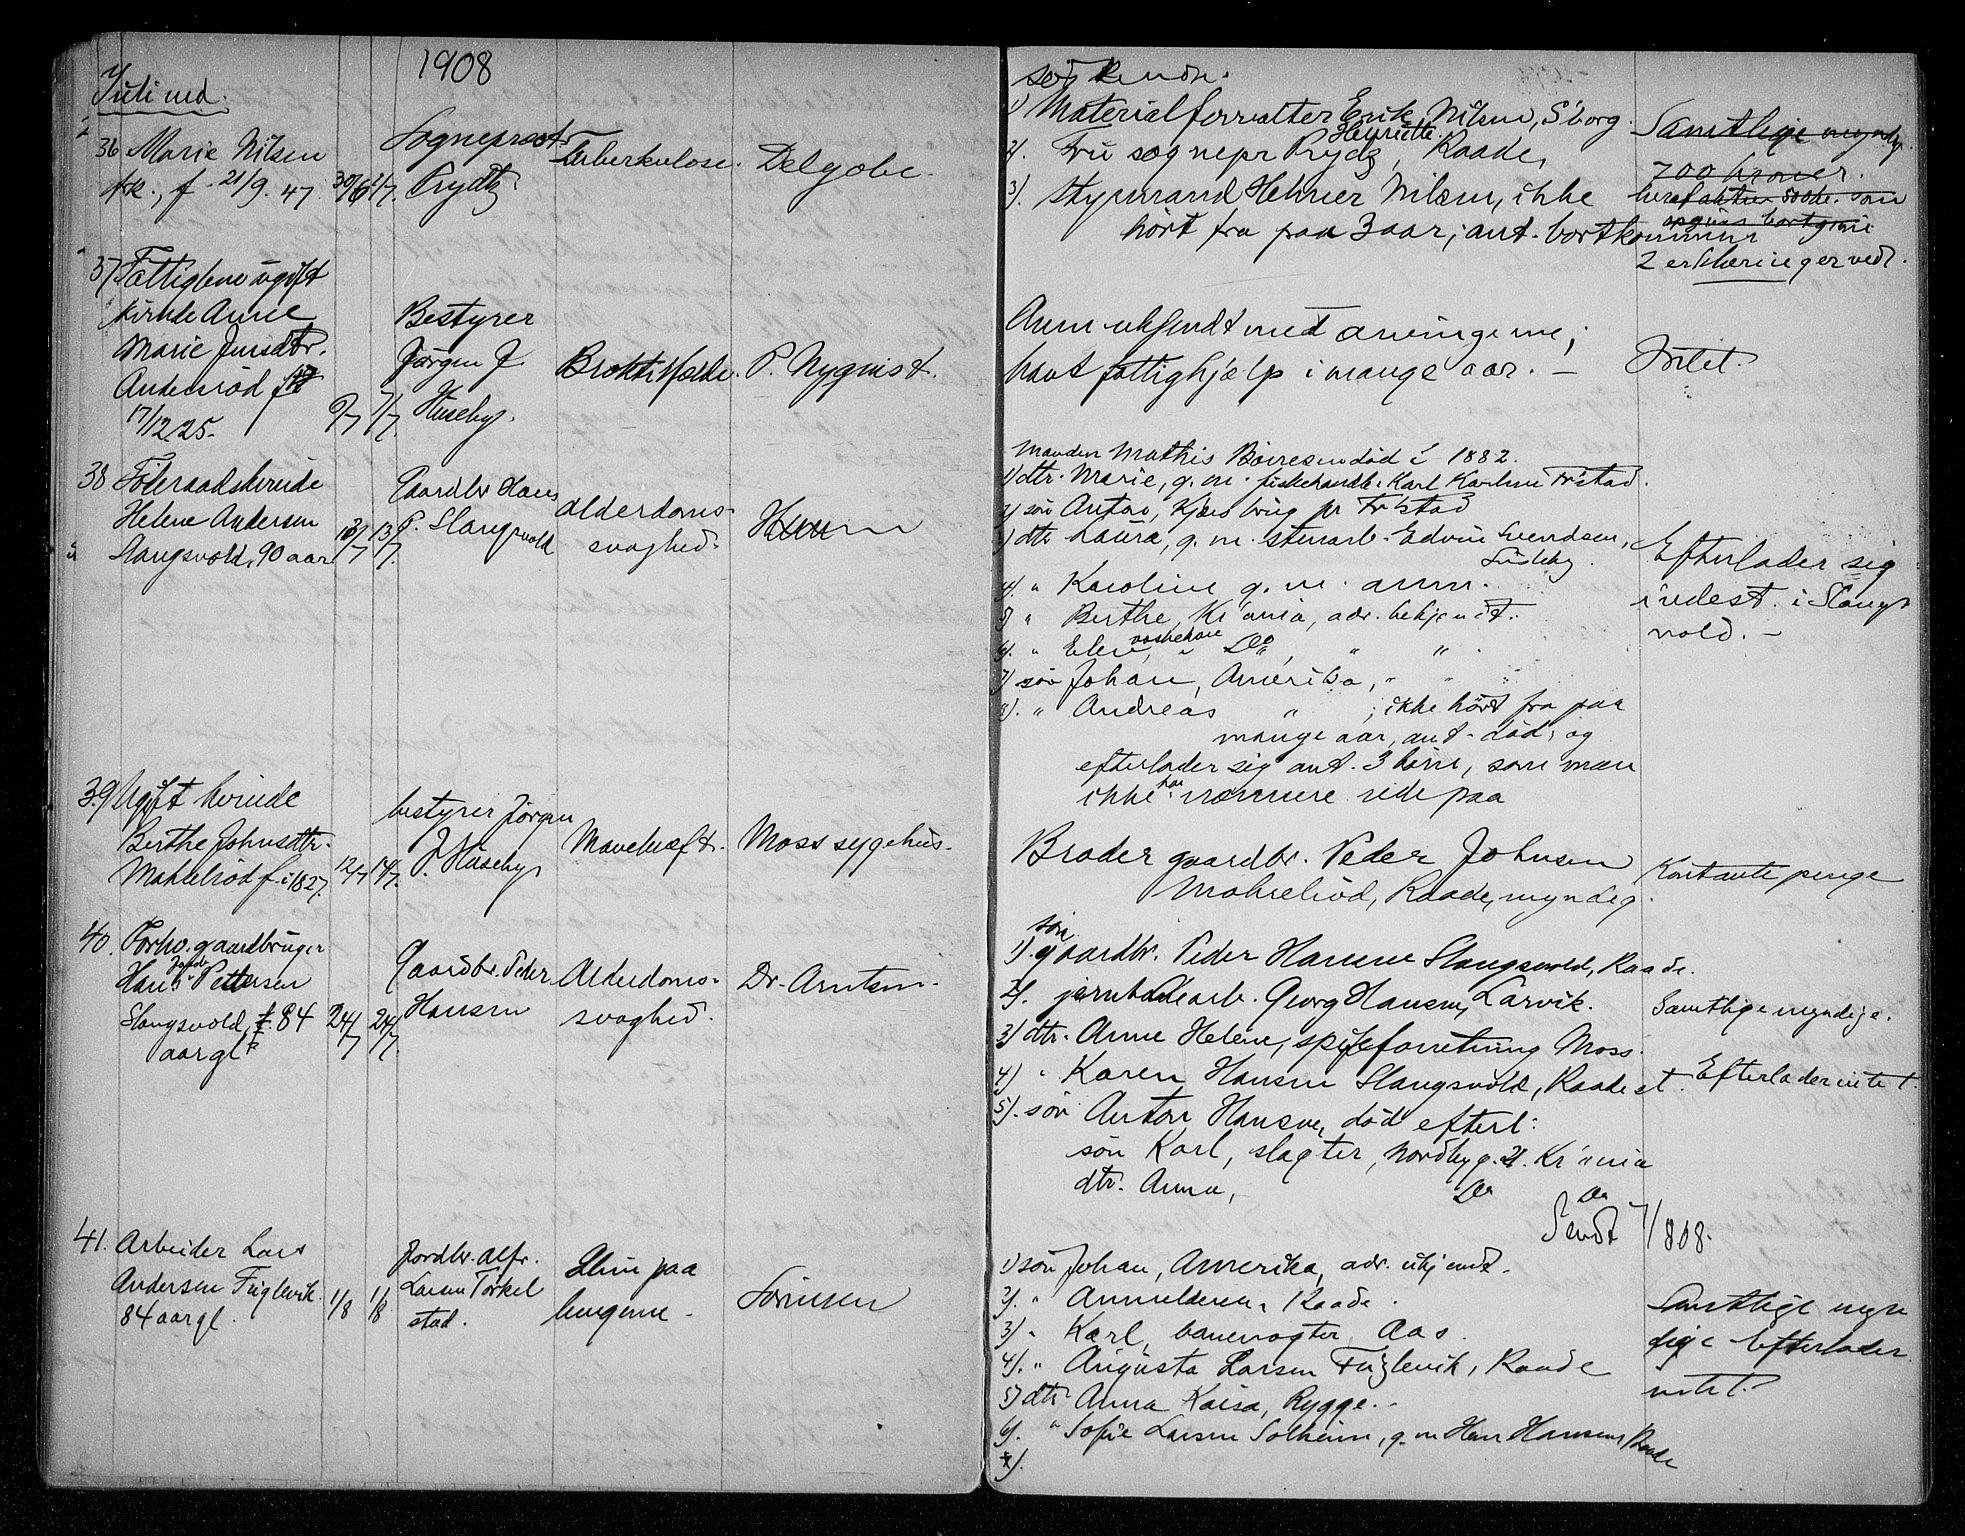 1908
Juli md.
36 Marie Nilsen
frk., f. 21/9. 47. 30/6 2/7.
Sogneprest
Prydtz.
Tuberkulose.
Delgobe.
37 Fattiglem ugift
kvinde Anne
Marie Jensdtr.
Andersröd f
17/12 25. 6/7 7/7.
Bestyrer
Jörgen J.
Huseby.
P. Nyquist.
38 Föderaadskvinde
Helene Andersen
Slangsvold, 90 aar 13/7.
Gaardbr. Hans
P. Slangsvold
Alderdoms-
svaghed.
39 Ugift kvinde
Berthe Johnsdtr.
f. i 1827. 12/7 14/7.
bestyrer Jörgen
J. Huseby
Mavekræft.
Moss sygehus.
40. Forhv. gaardbruger
Hans Pettersen
Slangsvold, 84 24/7 24/7.
aar gl
Gaardbr. Peder
Hansen
Alderdoms-
svaghed.
Dr. Arntzen.
41. Arbeider Lars
Andersen Fuglevik. 1/8 1/8
84 aar gl.
Jordbr. Alfr.
Larsen Torkel
stad.
Slim paa
lungerne.
Sörensen
söskende.
1) Materialforvalter Erik Nilsen, S'borg.
2). Fru sognepr Henriette Prydz, Raade,
3). Styrmand Nilsen, ikke
hört fra paa 3 aar; ant. bortkommen
Samtlige myndige.
700 kroner.
2 erklæringer vedl.
Anm ukjendt med arvingerne;
havt fattighjælp i mange aar. —
Intet.
Manden Mathis Börresen död i 1882.
1) dtr. Marie, g. m. fiskehandl. Karl Karlsen Fr'stad.
2) sön Anton, Kjærsbrug pr Fr'stad
3) dtr Laura, g. m. stenarb. Edvin Svendsen,
4). " Karoline g. m. anm.
5) " Berthe, Kr'ania, adr. bekjendt.
6). " vaskekone Do, " "
7) sön Johan, Amerika, " "
8). " Andreas " ; ikke hört fra paa
mange aar, ant. död; og
efterlader sig ant. 3 börn, som man
ikke har nærmere rede paa
Efterlader sig
indest. i Slangs
vold. —
Broder gaardbr. Peder Johnsen
Raade, myndig.
Kontante penge
sön
1). gaardbr. Peder Hansen Slangsvold, Raade.
2). jernbanearb. Georg Hansen, Larvik.
3) dtr. Anne Helene, spiseforretning Moss.
4) " Karen Hansen Slangsvold, Raade st.
5). sön Anton Hansen, död efterl:
sön Karl, slagter, Nordbyg. 21. Kr'ania
dtr. Anna, Do Do
Samtlige myndige.
Efterlader intet.
Sendt 7/8 08.
1) sön Johan, Amerika, adr. ukjendt.
2). " Anmelderen, Raade.
3) " Karl, banevogter, Aas.
4). " Augusta Larsen Fuglevik, Raade
5) dtr Anna Kaisa, Rygge.
6). " Sofie Larsen Solheim, g. m Hansen, Raade
7).
Samtlige myn
dige Efterlader
intet.